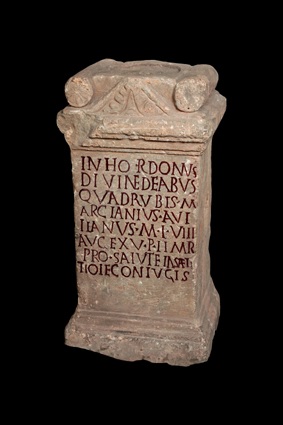 IN HO R DOMVS
DIVINE DEABVS
QVADRVBIS M
ARCIANIVS AVI
TIANVS M L VIII
AVC EX V P II M R
PRO SALVTE
CONIVGIS